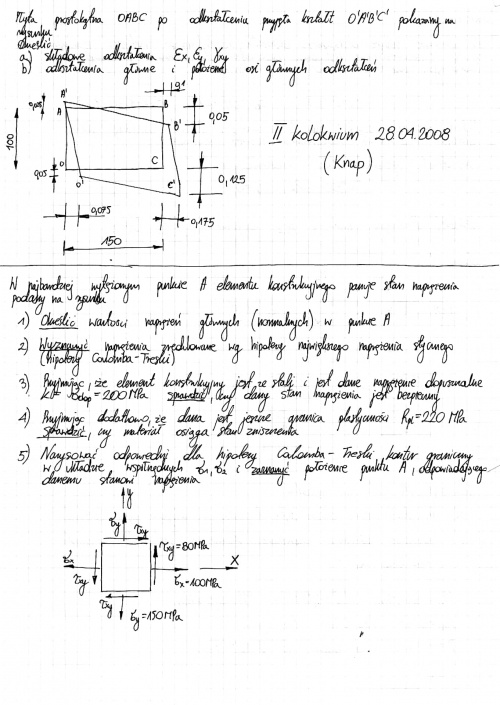 Płyta prostokątna OABC po odkształceniu przyjęła kształt O'A'B'C' pokazany na
rysunku
Określić
a) składowe odkształcenia εx, εy, γxy
b) odkształcenia główne i położenie osi głównych odkształceń
A'
0,1
0,025
A
B
B'
0,05
100
II kolokwium 28.04.2008
(Knap)
O
C
0,05
O'
C'
0,125
0,075
0,175
150
W najbardziej wytężonym punkcie A elementu konstrukcyjnego panuje stan naprężenia
podany na rysunku
1) Określić wartości naprężeń głównych (normalnych) w punkcie A
2) Wyznaczyć naprężenia zredukowane wg hipotezy największego naprężenia stycznego
(hipotezy Coulomba-Treski)
3) Przyjmując, że element konstrukcyjny jest ze stali i jest dane naprężenie dopuszczalne
= 200 MPa sprawdzić, czy dany stan naprężenia jest bezpieczny
4) Przyjmując dodatkowo, że dana jest jeszcze granica plastyczności Rpl=220 MPa
sprawdzić, czy materiał osiąga stan zniszczenia
5) Narysować odpowiedni dla hipotezy Coulomba-Treski kontur graniczny
w układzie współrzędnych σ1, σ2 i zaznaczyć położenie punktu A, odpowiadającego
danemu stanowi naprężenia
y
σy
τxy
τxy=80MPa
σx
x
τxy
σx=100MPa
τxy
σy=150MPa